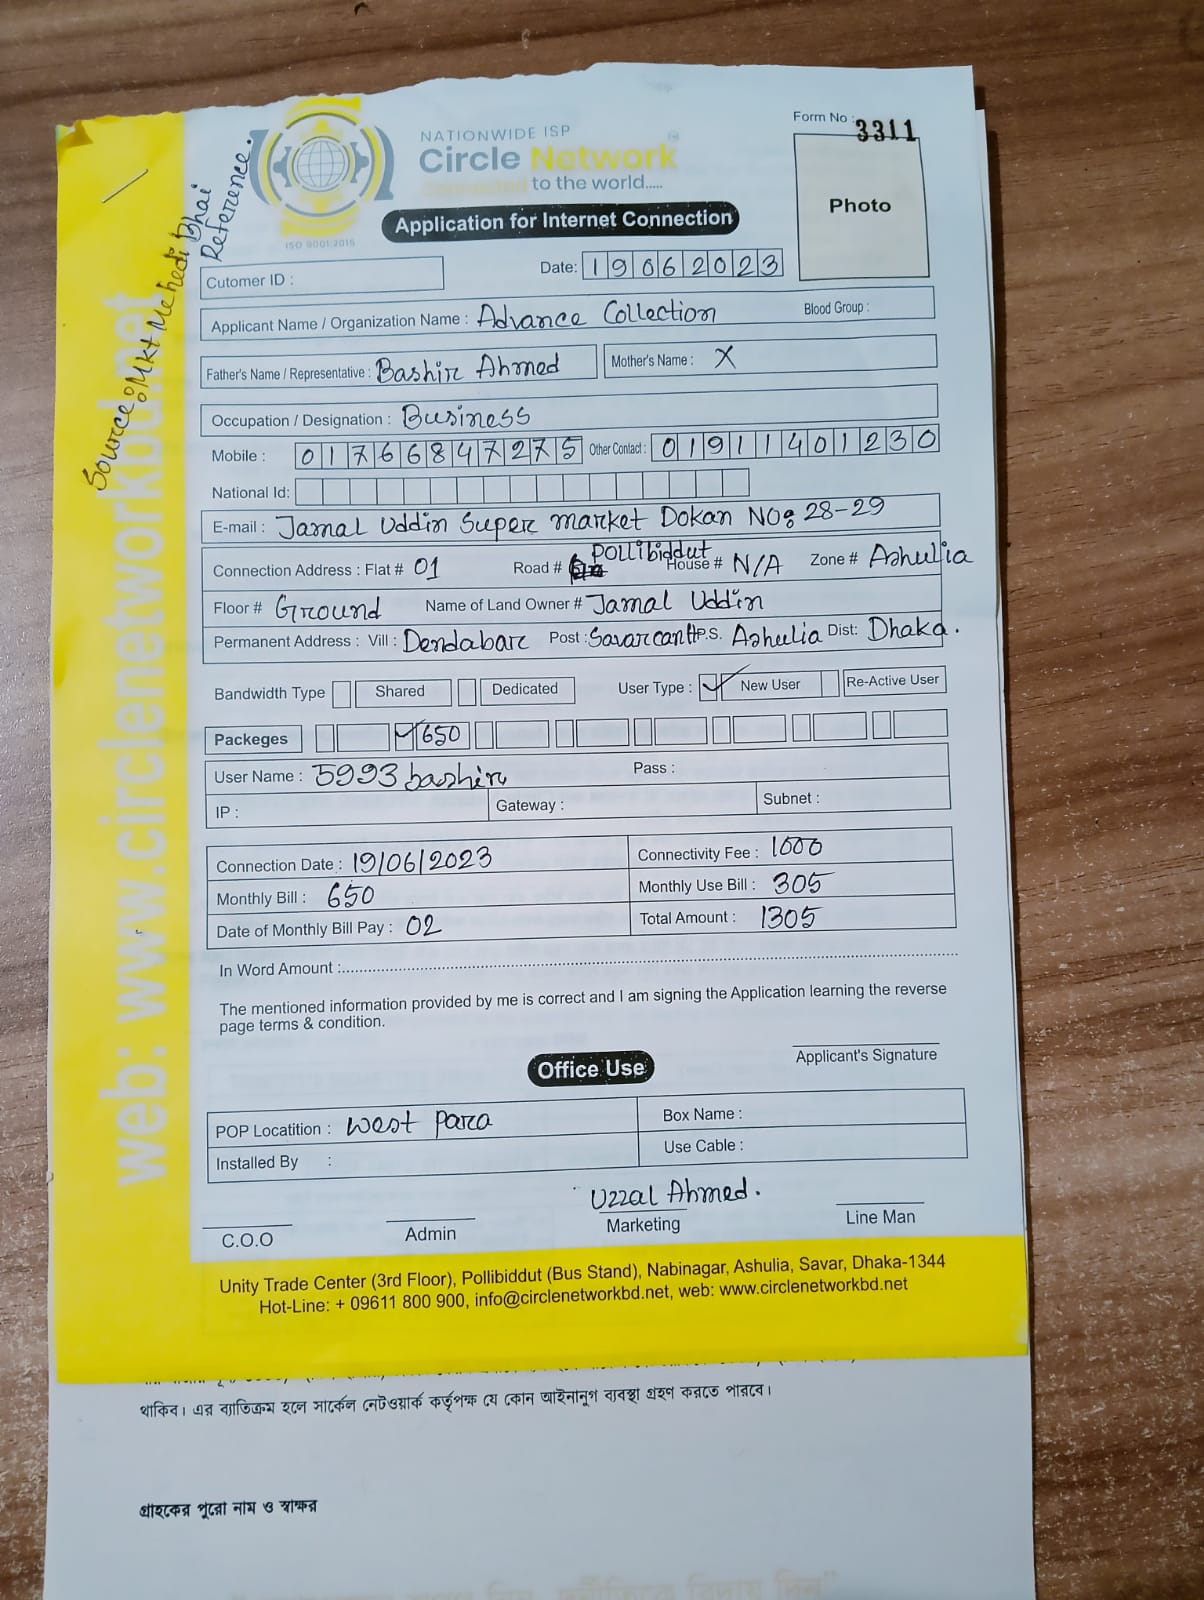 NATIONWIDE ISP
Circle Network
Connected to the world.....
ISO 9001:2015
Form No : 3311
Photo
Application for Internet Connection
Source: Mkt Mehedi Bhai
Reference.
web: www.circlenetworkbd.net
Cutomer ID :
Date: 19062023
Applicant Name / Organization Name : Advance Collection Blood Group :
Father's Name / Representative : Bashir Ahmed Mother's Name : X
Occupation / Designation : Business
Mobile : 01766847275 Other Contact : 01911401230
National Id:
E-mail : Jamal Uddin Super market Dokan No: 28-29
Connection Address : Flat # 01 Road # Pollibiddut House # N/A Zone # Ashulia
Floor # Ground Name of Land Owner # Jamal Uddin
Permanent Address : Vill : Dendabar Post : Savarcantt P.S. Ashulia Dist: Dhaka.
Bandwidth Type Shared Dedicated User Type : ✓ New User Re-Active User
Packeges ✓ 650
User Name : 5993bashir Pass :
IP : Gateway : Subnet :
Connection Date : 19/06/2023 Connectivity Fee : 1000
Monthly Bill : 650 Monthly Use Bill : 305
Date of Monthly Bill Pay : 02 Total Amount : 1305
In Word Amount :
The mentioned information provided by me is correct and I am signing the Application learning the reverse
page terms & condition.
Applicant's Signature
Office Use
POP Locatition : West Para Box Name :
Installed By : Use Cable :
Uzzal Ahmed.
C.O.O Admin Marketing Line Man
Unity Trade Center (3rd Floor), Pollibiddut (Bus Stand), Nabinagar, Ashulia, Savar, Dhaka-1344
Hot-Line: + 09611 800 900, info@circlenetworkbd.net, web: www.circlenetworkbd.net
থাকিব। এর ব্যাতিক্রম হলে সার্কেল নেটওয়ার্ক কর্তৃপক্ষ যে কোন আইনানুগ ব্যবস্থা গ্রহণ করতে পারবে।
গ্রাহকের পুরো নাম ও স্বাক্ষর